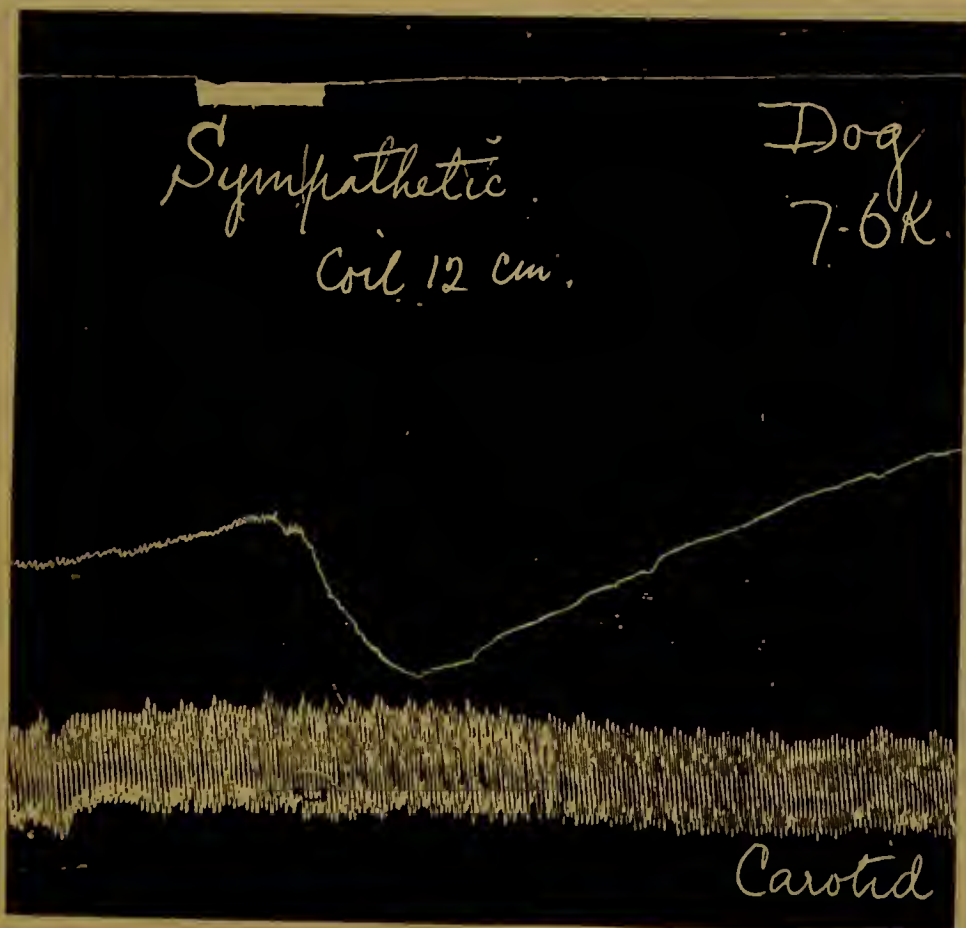 Sympathetic.
Coil 12 cm.
Dog
7.6K.
Carotid